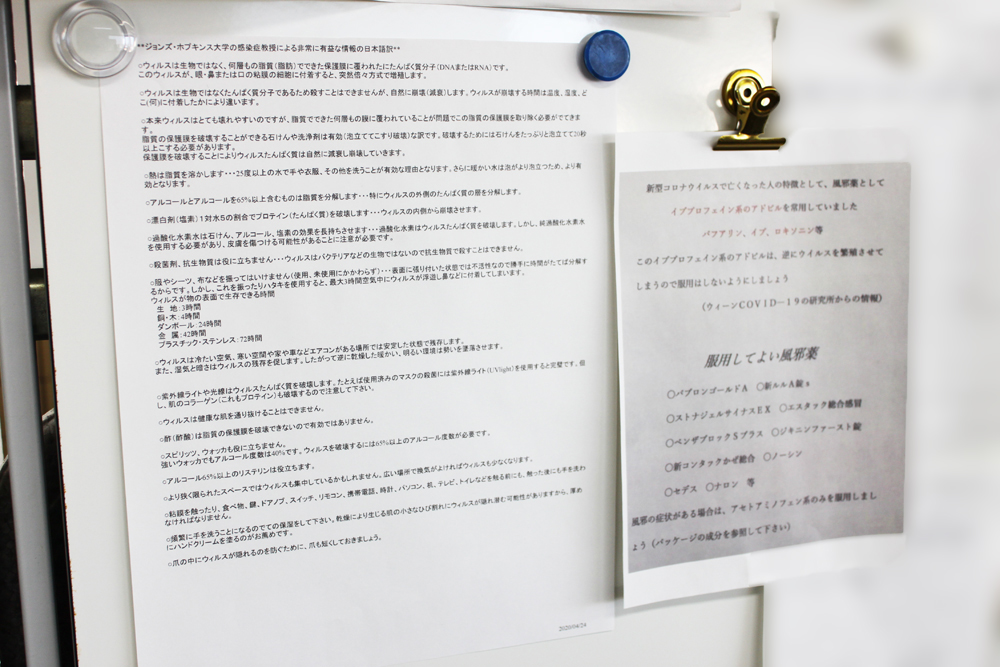 **ジョンズ・ホプキンス大学の感染症教授による非常に有益な情報の日本語訳**
○ウィルスは生物ではなく、何層もの脂質(脂肪)でできた保護膜に覆われたにたんぱく質分子(DNAまたはRNA)です。
このウィルスが、眼・鼻または口の粘膜の細胞に付着すると、突然倍々方式で増殖します。
○ウィルスは生物ではなくたんぱく質分子であるため殺すことはできませんが、自然に崩壊(減衰)します。ウィルスが崩壊する時間は温度、湿度、ど
こ(何)に付着したかにより違います。
○本来ウィルスはとても壊れやすいのですが、脂質でできた何層もの膜に覆われていることが問題でこの脂質の保護膜を取り除く必要がでてきま
す。
脂質の保護膜を破壊することができる石けんや洗浄剤は有効(泡立ててこすり破壊)な訳です。破壊するためには石けんをたっぷりと泡立てて20秒
以上こする必要があります。
保護膜を破壊することによりウィルスたんぱく質は自然に減衰し崩壊していきます。
○熱は脂質を溶かします・・・25度以上の水で手や衣服、その他を洗うことが有効な理由となります。さらに暖かい水は泡がより泡立つため、より有
効となります。
○アルコールとアルコールを65%以上含むものは脂質を分解します・・・特にウィルスの外側のたんぱく質の層を分解します。
○漂白剤(塩素)1対水5の割合でプロテイン(たんぱく質)を破壊します・・・ウィルスの内側から崩壊させます。
○過酸化水素水は石けん、アルコール、塩素の効果を長持ちさせます・・・過酸化水素はウィルスたんぱく質を破壊します。しかし、純過酸化水素水
を使用する必要があり、皮膚を傷つける可能性があることに注意が必要です。
○殺菌剤、抗生物質は役に立ちません・・・ウィルスはバクテリアなどの生物ではないので抗生物質で殺すことはできません。
○服やシーツ、布などを振ってはいけません(使用、未使用にかかわらず)・・・表面に張り付いた状態では不活性なので勝手に時間がたてば分解す
るからです。しかし、これを振ったりハタキを使用すると、最大3時間空気中にウィルスが浮遊し鼻などに付着してしまいます。
ウィルスが物の表面で生存できる時間
生 地:3時間
銅・木:4時間
ダンボール:24時間
金 属:42時間
プラスチック・ステンレス:72時間
○ウィルスは冷たい空気、寒い空間や家や車などエアコンがある場所では安定した状態で残存します。
また、湿気と暗さはウィルスの残存を促します。したがって逆に乾燥した暖かい、明るい環境は勢いを墜落させます。
○紫外線ライトや光線はウィルスたんぱく質を破壊します。たとえば使用済みのマスクの殺菌には紫外線ライト(UVlight)を使用すると完璧です。但
し、肌のコラーゲン(これもプロテイン)も破壊するので注意して下さい。
○ウィルスは健康な肌を通り抜けることはできません。
○酢(酢酸)は脂質の保護膜を破壊できないので有効ではありません。
○スピリッツ、ウォッカも役に立ちません。
強いウォッカでもアルコール度数は40%です。ウィルスを破壊するには65%以上のアルコール度数が必要です。
○アルコール65%以上のリステリンは役立ちます。
○より狭く限られたスペースではウィルスも集中しているかもしれません。広い場所で換気がよければウィルスも少なくなります。
○粘膜を触ったり、食べ物、鍵、ドアノブ、スイッチ、リモコン、携帯電話、時計、パソコン、机、テレビ、トイレなどを触る前にも、触った後にも手を洗わ
なければなりません。
○頻繁に手を洗うことになるのでての保湿をして下さい。乾燥により生じる肌の小さなひび割れにウィルスが隠れ潜む可能性がありますから、厚め
にハンドクリームを塗るのがお薦めです。
○爪の中にウィルスが隠れるのを防ぐために、爪も短くしておきましょう。
2020/04/24
新型コロナウイルスで亡くなった人の特徴として、風邪薬として
イブプロフェイン系のアドビルを常用していました
バファリン、イブ、ロキソニン等
このイブプロフェイン系のアドビルは、逆にウイルスを繁殖させて
しまうので服用はしないようにしましょう
(ウィーンCOVID―19の研究所からの情報)
服用してよい風邪薬
○パブロンゴールドA ○新ルルA錠s
○ストナジェルサイナスEX ○エスタック総合感冒
○ベンザブロックSプラス ○ジキニンファースト錠
○新コンタックかぜ総合 ○ノーシン
○セデス ○ナロン 等
風邪の症状がある場合は、アセトアミノフェン系のみを服用しまし
ょう(パッケージの成分を参照して下さい)